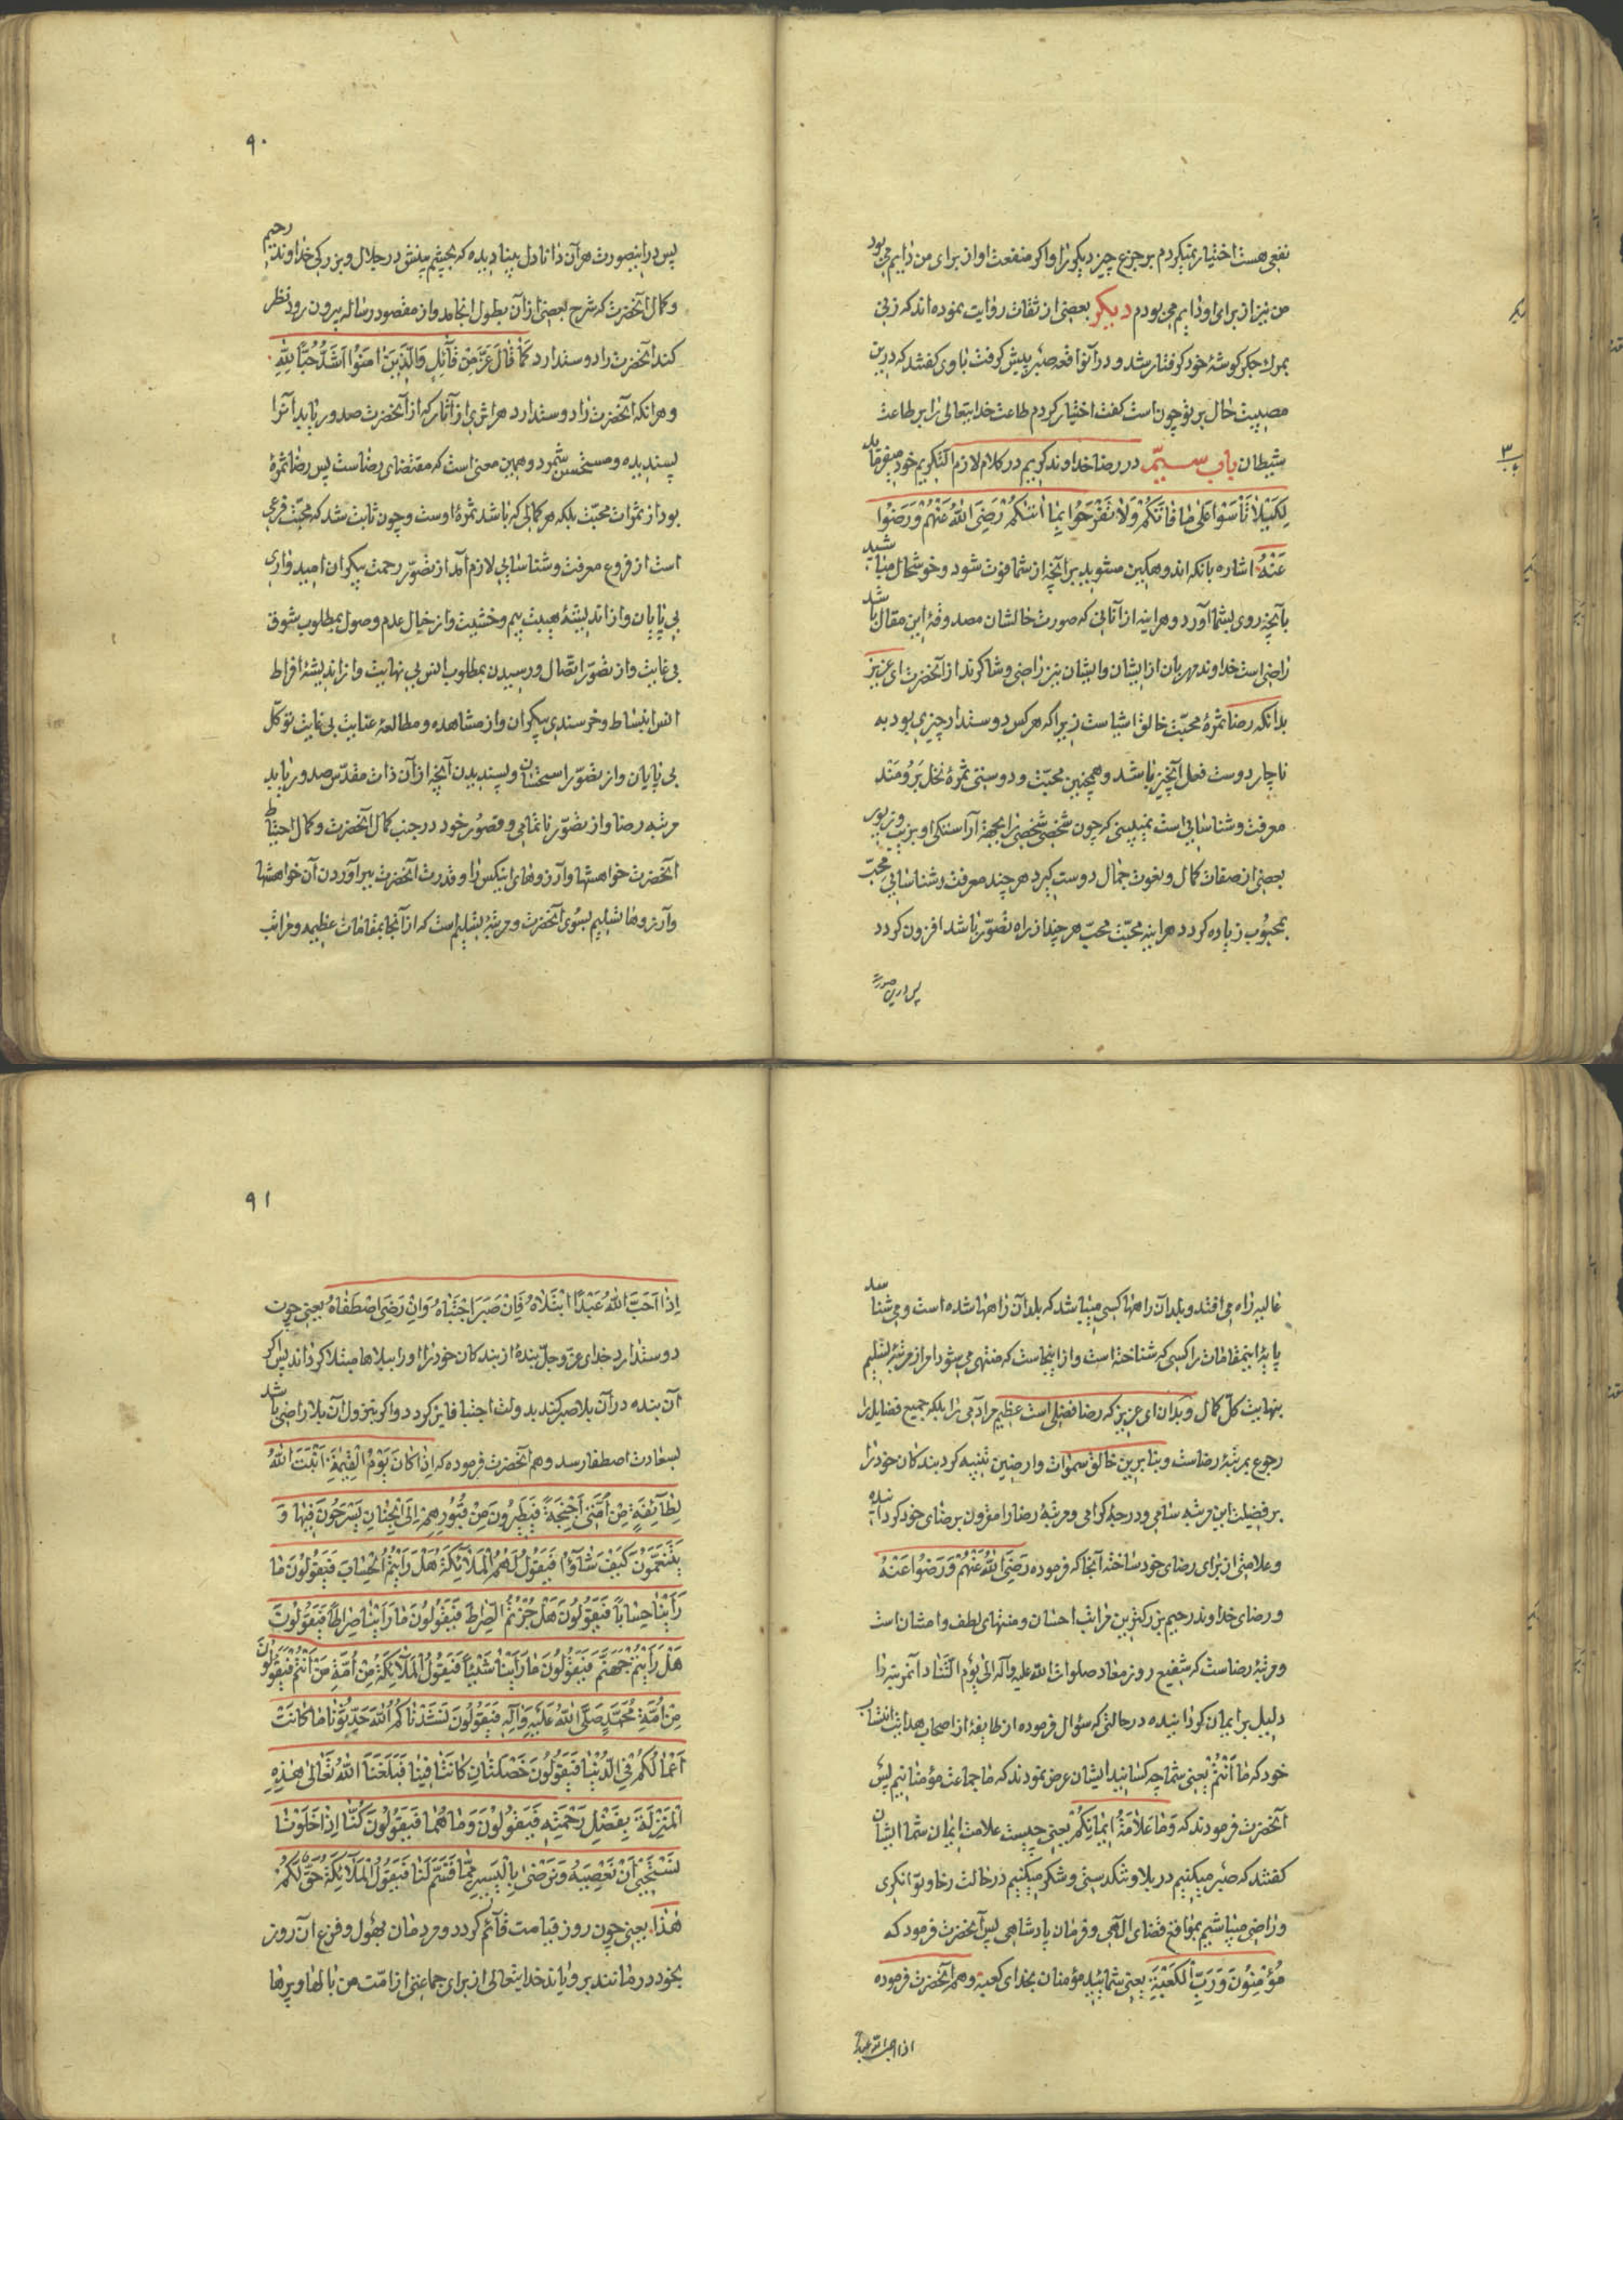 نفعی هست اختیار نمیکردم بر جزع چیز دیگر را و اگر منفعت او از برای من دایم می بود
من نیز از برای او دایم می بودم دیگر بعضی از ثقات روایت نموده اند که زنی
بمرك جکر کوشهٔ خود کرفتار شد و در آنواقعه صبر پیش کرفت باوی کفتند که درین
مصیبت حال بر تو چون است کفت اختیار کردم طاعت خدایتعالی را بر طاعت
شیطان باب سیّم در رضا خداوند کریم در کلام لازم التکریم خود میفرماید
لِكَيْلا تَأْسَوْا عَلىٰ مٰا فٰاتَكُمْ وَلاٰ تَفْرَحُوا بِمٰا اٰتٰىكُمْ رَضِیَ اللّٰهُ عَنْهُمْ وَرَضُوا
عَنْهُ اشاره بانکه اندوهکین مشوید برآنچه از شما فوت شود و خوشحال مباشید
بآنچه روی بشما آورد و هراینه از آنانی که صورت حالشان مصدوقهٔ این مقال باشد
راضی است خداوند مهربان از ایشان و ایشان نیز راضی و شاکرند از آنحضرت ای عزیز
بدانکه رضا ثمرهٔ محبّت خالق اشیاست زیرا که هر کس دوستدار چیزی بود به
ناچار دوست فعل آنچیز باشد و همچنین محبّت و دوستی ثمرهٔ نخل بَرُومَند
معرفت و شناسایی است نمیبینی که چون شخصی شخصی را بجهة آراستکی او بزیب و زیور
بعضی از صفات کمال و نعوت جمال دوست کیرد هر چند معرفت و شناسایی محبّ
بمحبُوب زیاده کردد هراینه محبّت محبّ هر چند از راه تصوّر باشد افزون کردد
پس درین صورت
۹۰
پس در اینصورت هر آن دانا دل بینا دیده که بچشم بینش در جلال و بزرکی خداوند رحیم
و کمال آنحضرت که شرح بعضی از آن بطول انجامد و از مقصود رساله بیرون رود نظر
کند آنحضرت را دوستدارد كَمٰا قٰالَ عَزَّ مِنْ قٰآئِلٍ وَالَّذِینَ اٰمَنُوا اَشَدُّ حُبًّا لِلّٰهِ
و هرانکه آنحضرت را دوستدارد هر اثری از آثار که از آنحضرت صدور یابد آنرا
پسندیده و مستحسن شمرد و همین معنی است که مقتضای رضاست پس رضا ثمرهٔ
بود از ثمرات محبّت بلکه هر کمالی که باشد ثمرهٔ اوست و چون ثابت شد که محبّت فرعی
است از فروع معرفت و شناسایی لازم آمد از تصوّر رحمت بیکران امیدواری
بی پایان و از اندیشهٔ هیبت بیم و خشیت و از خیال عدم وصول بمطلوب شوق
بی غایت و از تصوّر اتّصال و رسیدن بمطلوب انس بی نهایت و از اندیشهٔ افراط
انس انبساط و خرسندی بیکران و از مشاهده و مطالعهٔ عنایت بی غایت توکّل
بی پایان و از تصوّر استحسان و پسندیدن آنچه از آن ذات مقدّس صدور یابد
مرتبه رضا و از تصوّر ناتمامی و قصُور خود در جنب کمال آنحضرت و کمال احتیاط
آنحضرت خواهشها و آرزوهای اینکس را و قدرت آنحضرت ببرآوردن آن خواهشها
و آرزوها تسلیم بسُوی آنحضرت و مرتبهٔ تسلیم است که از آنجا بمقامات عظیمه و مراتب
عالیه راه می افتد و بلد آن راهها کسی میباشد که بلد آن راهها شده است و می شناسد
پایهٔ اینمقامات را کسی که شناخته است و از اینجاست که منتهی می شود امر از مرتبهٔ تسلیم
بنهایت کلّ کمال و بدان ای عزیز که رضا فضلی است عظیم مر آدمی را بلکه جمیع فضایل را
رجوع بمرتبهٔ رضاست و بنابرین خالق سموٰات و ارضین تنبیه کرد بندکان خود را
بر فضیلت این مرتبه سٰامی و درجهٔ کرامی و مرتبهٔ رضا را مقرون برضای خود کردانیده
و علامتی از برای رضای خود ساخته آنجا که فرموده رَضِیَ اللّٰهُ عَنْهُمْ وَرَضُوا عَنْهُ
و رضای خداوند رحیم بزرکترین مراتب احسان و منتهای لطف و امتنان است
و مرتبهٔ رضاست که شفیع روز معاد صلوات اللّٰه علیه وآله الیٰ یؤم التّناد آنمرتبه را
دلیل بر ایمان کردانیده در حالتی که سؤال فرموده از طایفهٔ از اصحاب هدایت انتساب
خود که مٰا اَنْتُمْ یعنی شما چه کسٰانید ایشان عرض نمودند که ما جماعت مؤمنانیم پس
آنحضرت فرمودند که وَمٰا عَلاٰمَةُ اِیمٰانِكُمْ یعنی چیست علامت ایمان شما ایشان
کفتند که صبر میکنیم در بلا و تنکدستی و شکر میکنیم در حالت رخا و توٰانکری
و راضی میباشیم بمواقع قضای الٓهی و فرمان پادشاهی پس آنحضرت فرمود که
مُؤْمِنُونَ وَرَبِّ الْكَعْبَةِ یعنی شمائید مؤمنان بخدای کعبه و هم آنحضرت فرموده
اذا احبّ اللّه عبدا
۹۱
اِذٰا اَحَبَّ اللّٰهُ عَبْدًا ابْتَلاٰهُ فَاِنْ صَبَرَ اجْتَبٰاهُ وَاِنْ رَضِیَ اصْطَفٰاهُ یعنی چون
دوستدارد خدای عزّ و جلّ بندهٔ از بندکان خود را او را ببلاها مبتلا کرداند پس اکر
آن بنده در آن بلا صبر کند بدولت اجتبا فایز کردد و اکر بنزول آن بلا راضی باشد
بسعادت اصطفا رسد و هم آنحضرت فرموده که اِذٰا كٰانَ یَوْمُ الْقِیٰمَةِ اَثْبَتَ اللّٰهُ
لِطٰآئِفَةٍ مِنْ اُمَّتِی اَجْنِحَةً فَیَطِیرُونَ مِنْ قُبُورِهِمْ اِلَی الْجِنٰانِ یَسْرَحُونَ فِیهٰا وَ
یَتَنَعَّمُوْنَ كَیْفَ شٰآؤُا فَیَقُولُ لَهُمُ الْمَلآٰئِكَةُ هَلْ رَاَیْتُمُ الْحِسٰابَ فَیَقُولُونَ مٰا
رَاَیْنٰا حِسٰاباً فَیَقُولُونَ هَلْ جُزْتُمُ الصِّرٰاطَ فَیَقُولُونَ مٰا رَاَیْنٰا صِرٰاطًا فَیَقُولُونَ
هَلْ رَاَیْتُمْ جَهَنَّمَ فَیَقُولُونَ مٰا رَاَیْنٰا شَیْئاً فَیَقُولُ الْمَلآٰئِكَةُ مِنْ اُمَّةِ مَنْ اَنْتُمْ فَیَقُولُونَ
مِنْ اُمَّةِ مُحَمَّدٍ صَلَّی اللّٰهُ عَلَیْهِ وَاٰلِهِ فَیَقُولُونَ نَشَدْنٰاكُمُ اللّٰهَ حَدِّثُونٰا مٰا كٰانَتْ
اَعْمٰالُكُمْ فِی الدُّنْیٰا فَیَقُولُونَ خَصْلَتٰانِ كٰانَتٰا فِینٰا فَبَلَّغَنَا اللّٰهُ تَعٰالیٰ هٰذِهِ
الْمَنْزِلَةَ بِفَضْلِ رَحْمَتِهِ فَیَقُولُونَ وَمٰا هُمٰا فَیَقُولُونَ كُنّٰا اِذٰا خَلَوْنٰا
نَسْتَحْیِی اَنْ نَعْصِیَهُ وَنَرْضیٰ بِالْیَسِیرِ مِمّٰا قَسَّمَ لَنٰا فَیَقُولُ الْمَلآٰئِكَةُ حَقٌّ لَكُمْ
هٰذٰا یعنی چون روز قیامت قائم کردد و مردمان بهَول و فزع ان روز
بخود درمانند برویاند خدایتعالی از برای جماعتی از امّت من بالها و پرها